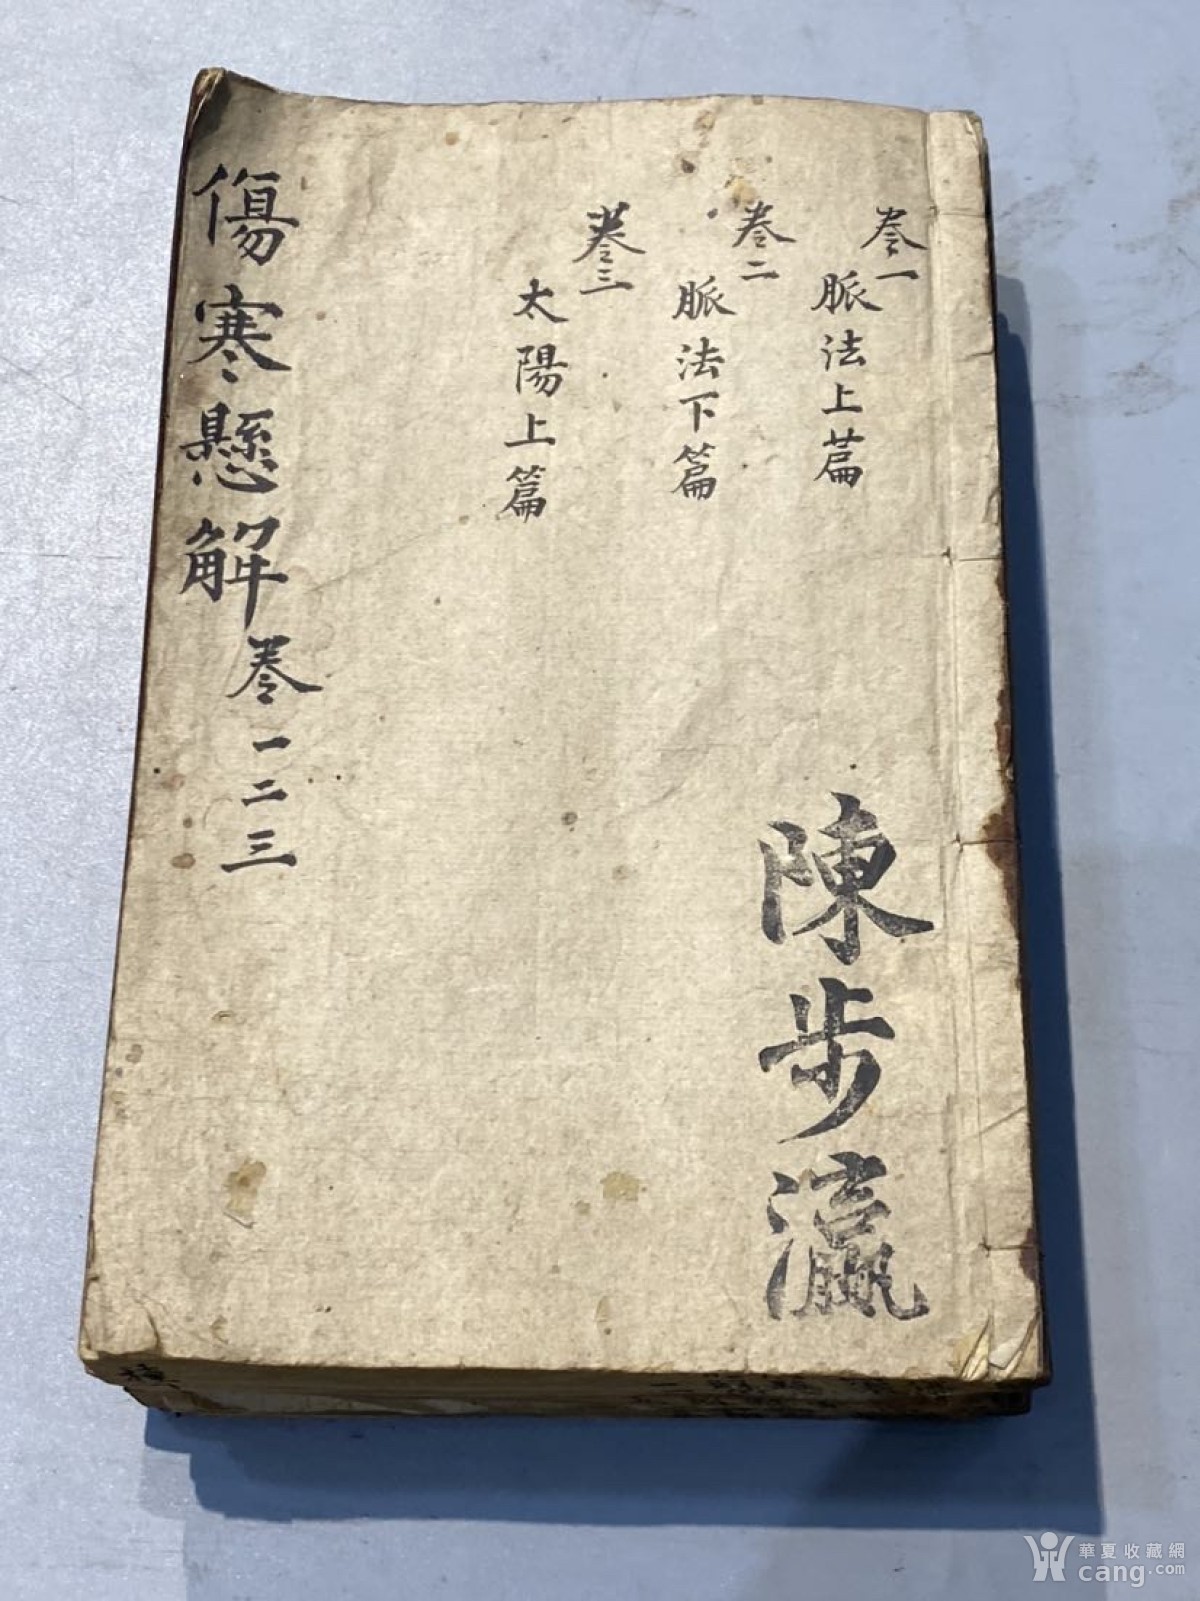 卷一
脈法上篇
卷二
脈法下篇
卷三
太陽上篇
傷寒懸解卷一二三
陳步瀛
華夏收藏網
cang.com